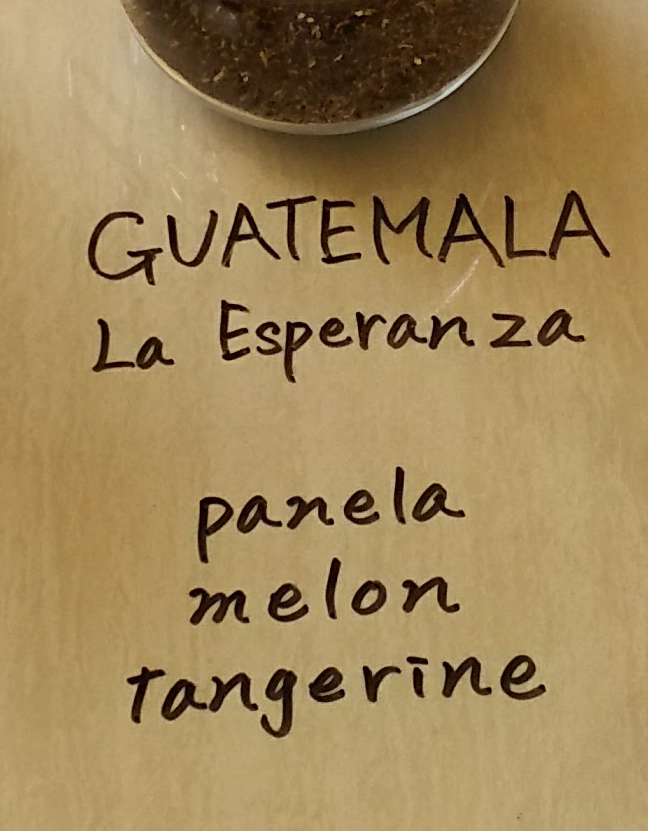 GUATEMALA
La Esperanza
panela
melon
tangerine